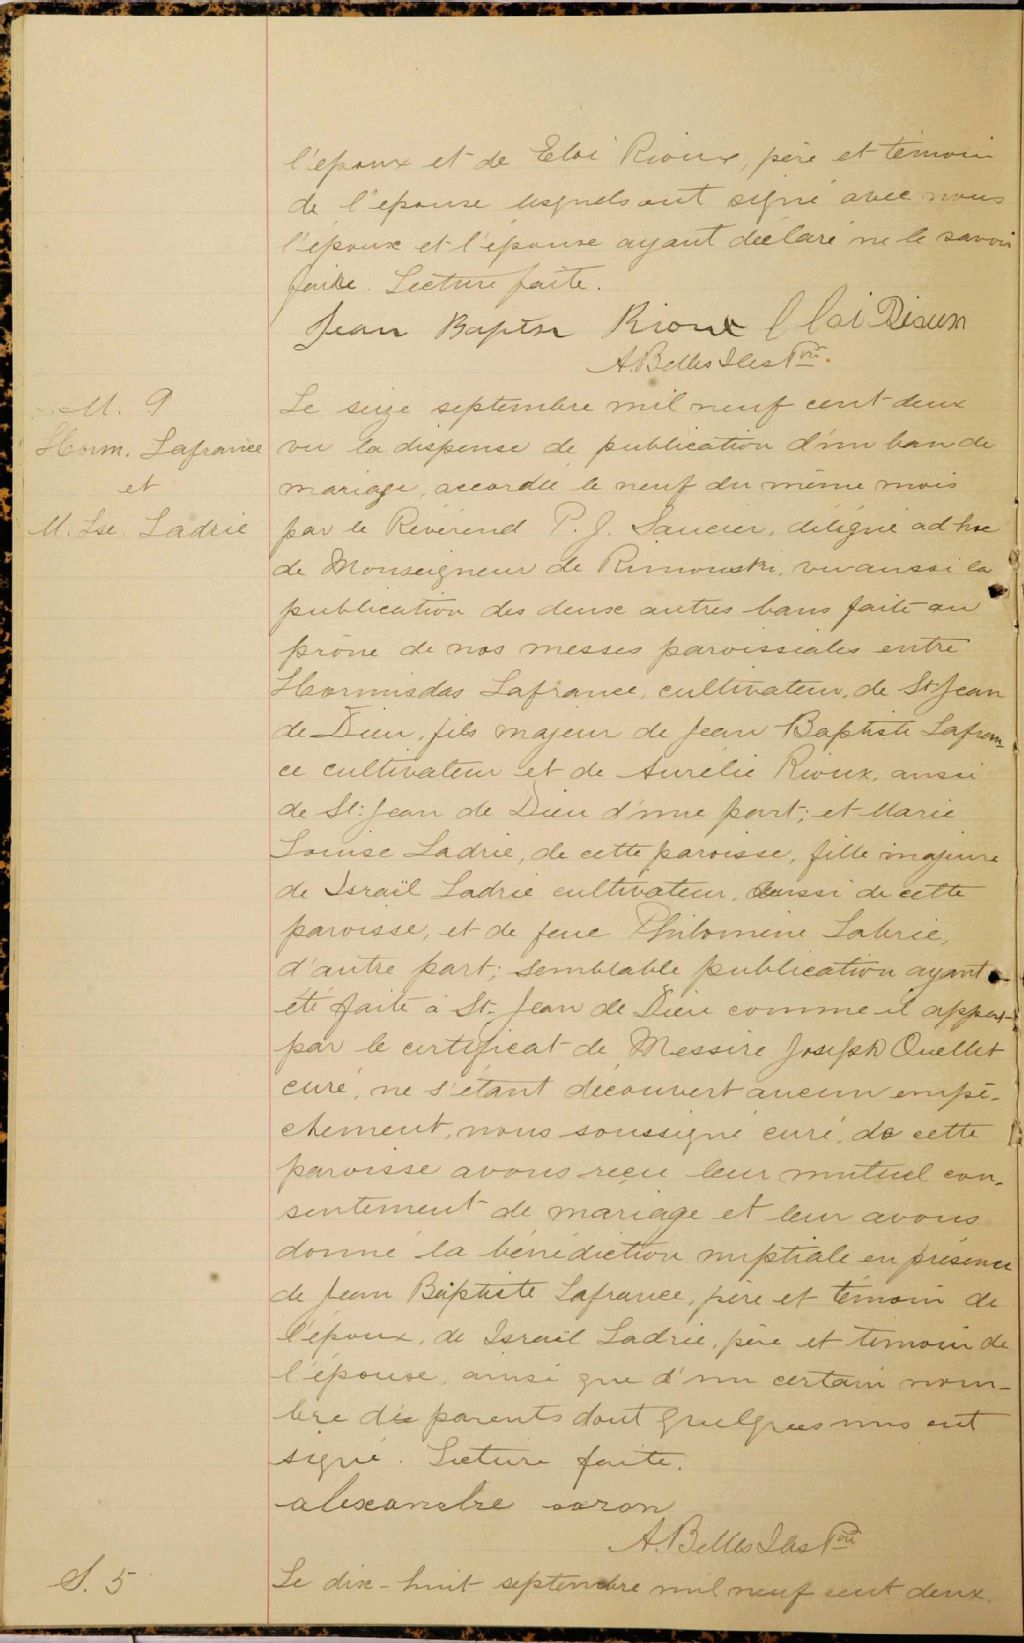 l'époux et de Eloi Rioux, père et témoin
de l'épouse lesquels ont signé avec nous
l'époux et l'épouse ayant déclaré ne le savoir
faire. Lecture faite.
Jean Baptse Rioux Eloi Rioux
A. Belles Iles Ptre.
M. 9
Horm. Lafrance
et
M. Lse. Ladrie
Le seize septembre mil neuf cent deux
vu la dispense de publication d'un ban de
mariage, accordée le neuf du même mois
par le Révérend P. J. Saucier, délégué ad hoc
de Monseigneur de Rimouski, vu aussi la
publication des deux autres bans faite au
prône de nos messes paroissiales entre
Hormisdas Lafrance, cultivateur, de St Jean
de Dieu, fils majeur de Jean Baptiste Lafran-
ce cultivateur et de Aurélie Rioux, aussi
de St. Jean de Dieu d'une part; et Marie
Louise Ladrie, de cette paroisse, fille majeure
de Israïl Ladrie cultivateur, aussi de cette
paroisse, et de feue Philomine Labrie,
d'autre part; semblable publication ayant
été faite à St. Jean de Dieu comme il appert
par le certificat de Messire Joseph Ouellet
curé, ne s'étant découvert aucun empê-
chement, nous soussigné curé, de cette
paroisse avons reçu leur mutuel con-
sentement de mariage et leur avons
donné la bénédiction nuptiale en présence
de Jean Baptiste Lafrance, père et témoin de
l'époux, de Israïl Ladrie, père et témoin de
l'épouse, ainsi que d'un certain nom-
bre des parents dont quelques uns ont
signé. Lecture faite.
alexandre caron
A. Belles Iles Ptre
S. 5
Le dix-huit septembre mil neuf cent deux.